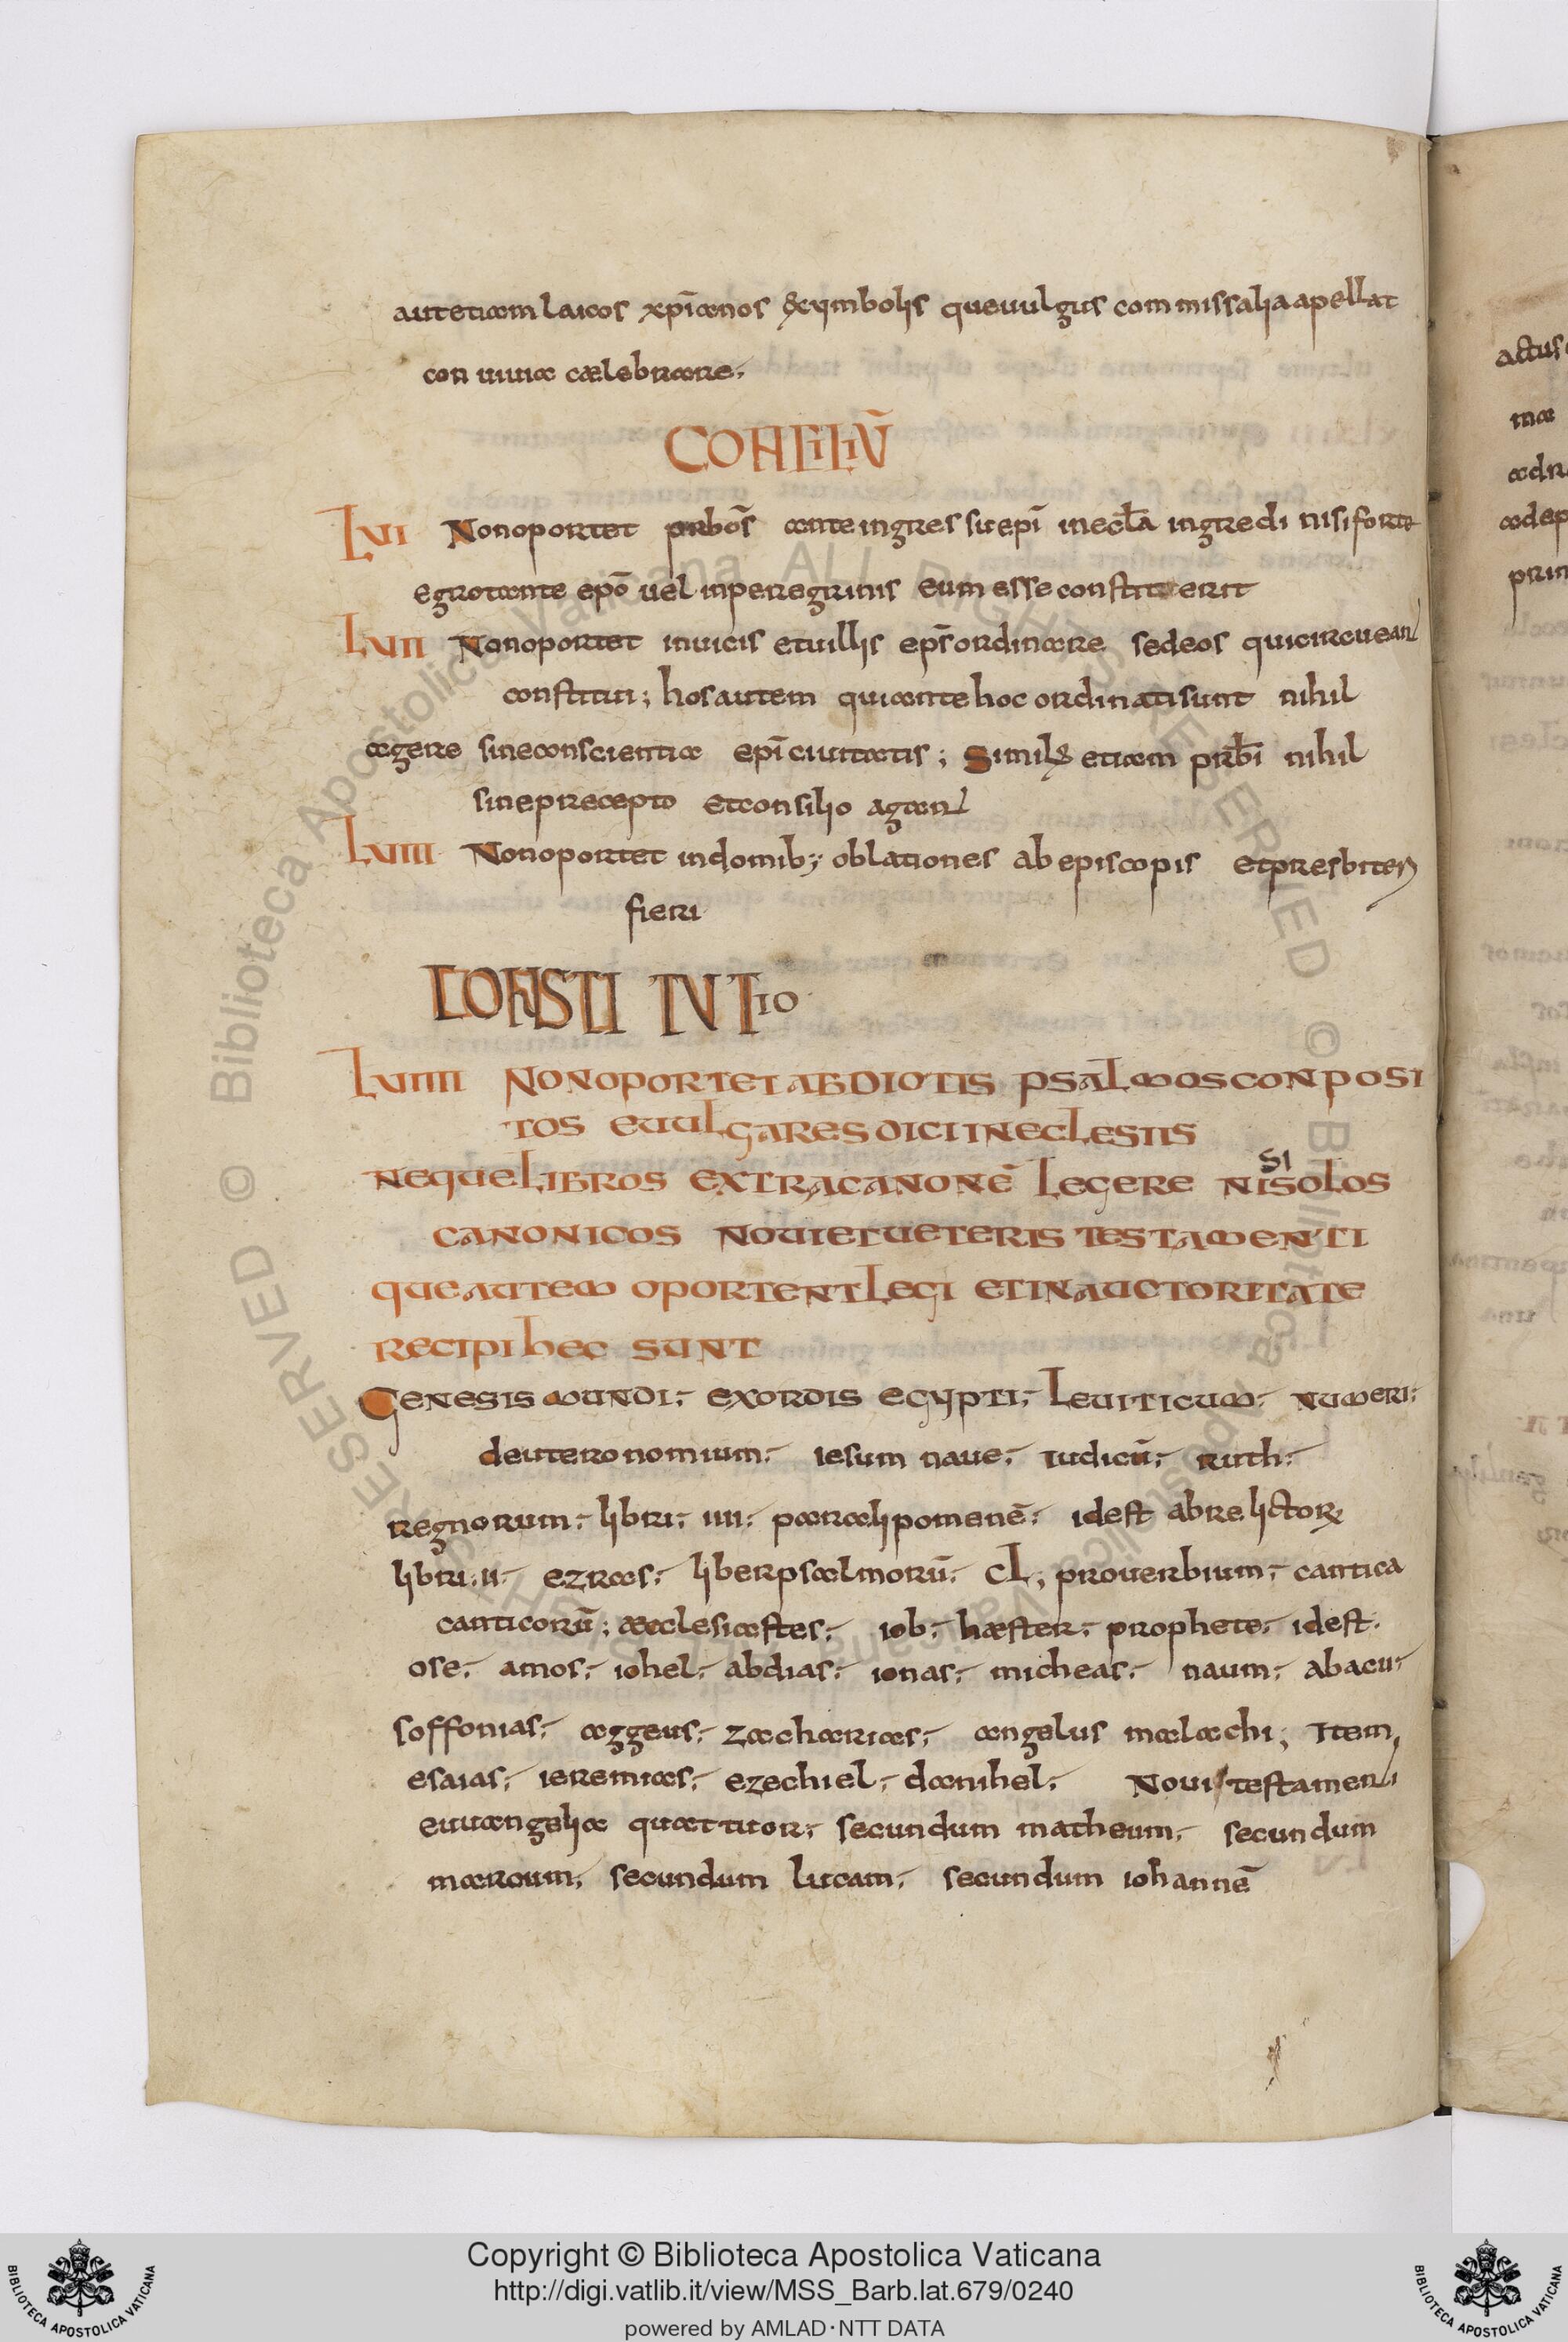 aut etiam laicos xp̄ianos & cymbolis que uulgus commissalia apellat
conuiuia cælebrare;
CONCILIŪ
LVI Non oportet prb̄os ante ingressu epī in ecl̄a ingredi nisi forte
egrotante epō uel in peregrinis eum esse constituerit
LVII Non oportet in uicis et uillis ep̄s ordinare sed eos qui circueant
constitui; hos autem qui ante hoc ordinati sunt nihil
agere sine conscientia epī ciuitatis; Similꝭ etiam prb̄i nihil
sine precepto et consilio agant
LVIII Non oportet in domib; oblationes ab episcopis et presbiteris
fieri
CONSTITUTIO
LVIIII NON OPORTET ABDIOTIS PSALMOS CONPOSI
TOS E UULGARES DICI IN ECLESIIS
NEQUE LIBROS EXTRA CANONĒ LEGERE NISI SOLOS
CANONICOS NOUI ET UETERIS TESTAMENTI
QUE AUTEM OPORTENT LEGI ET IN AUCTORITATE
RECIPI HEC SUNT
GENESIS MUNDI; EXORDIS EGYPTI; LEUITICUM; NUMERI;
deuteronomium; iesum naue; iudicū; ruth;
regnorum; libri; IIII; paralipomenē; id est ab relictorꝝ
libri; II; ezras; liber psalmorū; CL; prouerbium; cantica
canticorū; æcclesiastes; iob; hæster; prophete; id est;
ose; amos; iohel; abdias; ionas; micheas; naum; abacu;
soffonias; aggeus; zacharias; angelus malachi; Item,
esaias; ieremias; ezechiel; danihel; Noui testamenti
euuangelia quattuor; secundum matheum; secundum
marcum; secundum lucam; secundum iohannē
actus
ma
adr
adep
prim
Copyright © Biblioteca Apostolica Vaticana
http://digi.vatlib.it/view/MSS_Barb.lat.679/0240
powered by AMLAD·NTT DATA